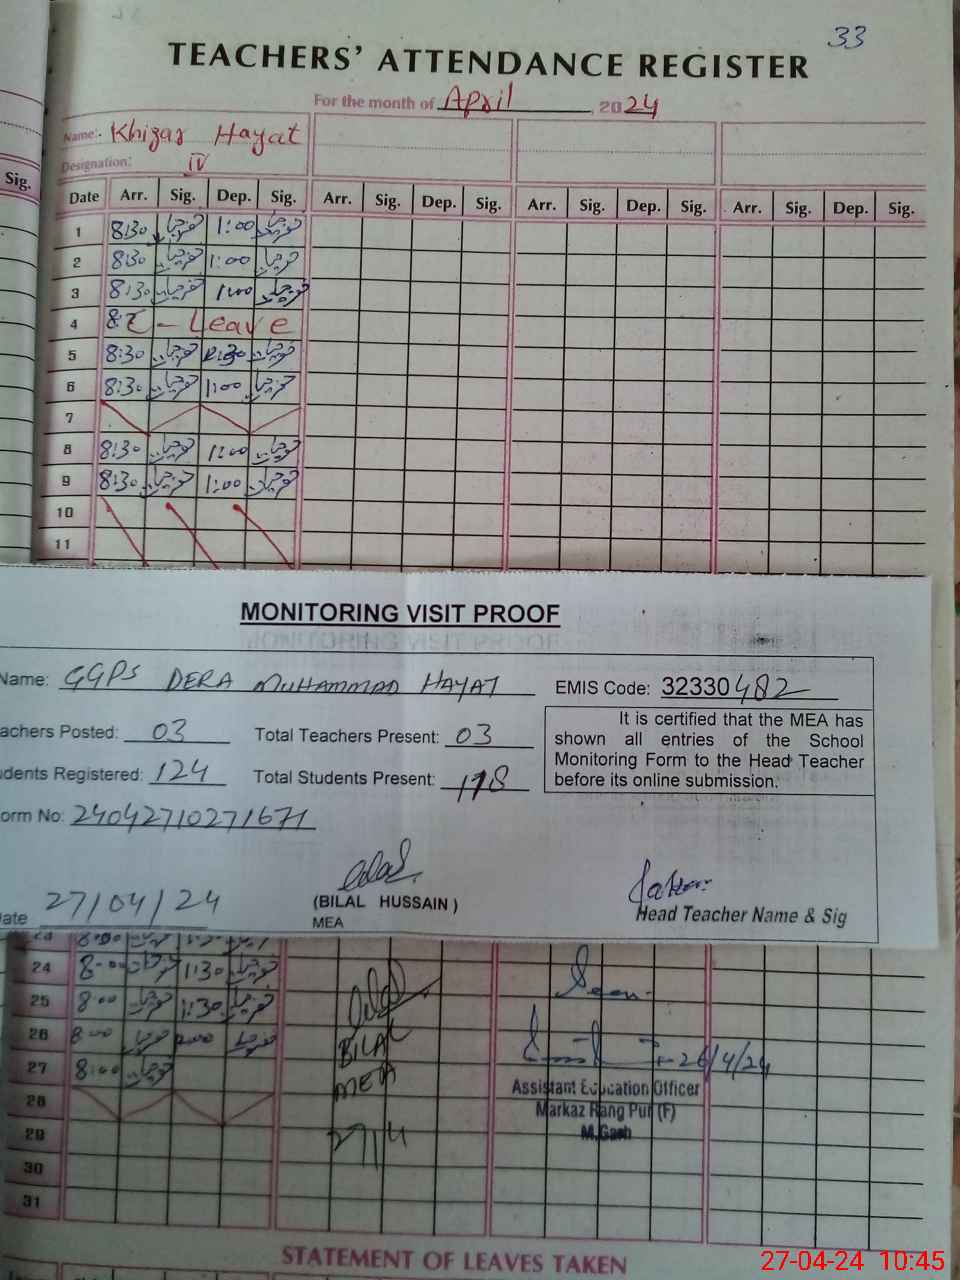 33
TEACHERS' ATTENDANCE REGISTER
For the month of April, 2024
Name: Khizar Hayat
Designation: IV
Sig.
Date Arr. Sig. Dep. Sig. Arr. Sig. Dep. Sig. Arr. Sig. Dep. Sig. Arr. Sig. Dep. Sig.
1 8:30 خضرحیات 1:00 خضرحیات
2 8:30 خضرحیات 1:00 خضرحیات
3 8:30 خضرحیات 1:00 خضرحیات
4 - Leave
5 8:30 خضرحیات خضرحیات
6 8:30 خضرحیات 1:00 خضرحیات
7
8 8:30 خضرحیات 1:00 خضرحیات
9 8:30 خضرحیات 1:00 خضرحیات
10
11
MONITORING VISIT PROOF
Name: GGPS DERA MUHAMMAD HAYAT EMIS Code: 32330482
achers Posted: 03 Total Teachers Present: 03
udents Registered: 124 Total Students Present: 118
orm No: 24042710271671
It is certified that the MEA has
shown all entries of the School
Monitoring Form to the Head Teacher
before its online submission.
ate 27/04/24
(BILAL HUSSAIN)
MEA
Head Teacher Name & Sig
23
24 8:00 خضرحیات 1:30 خضرحیات
25 8:00 خضرحیات 1:30 خضرحیات
26 8:00 خضرحیات خضرحیات
27 8:00 خضرحیات
28
29
30
31
BILAL
MEA
27/4
26/4/24
Assistant Education Officer
Markaz Rang Pur (F)
M.Garh
STATEMENT OF LEAVES TAKEN
27-04-24 10:45